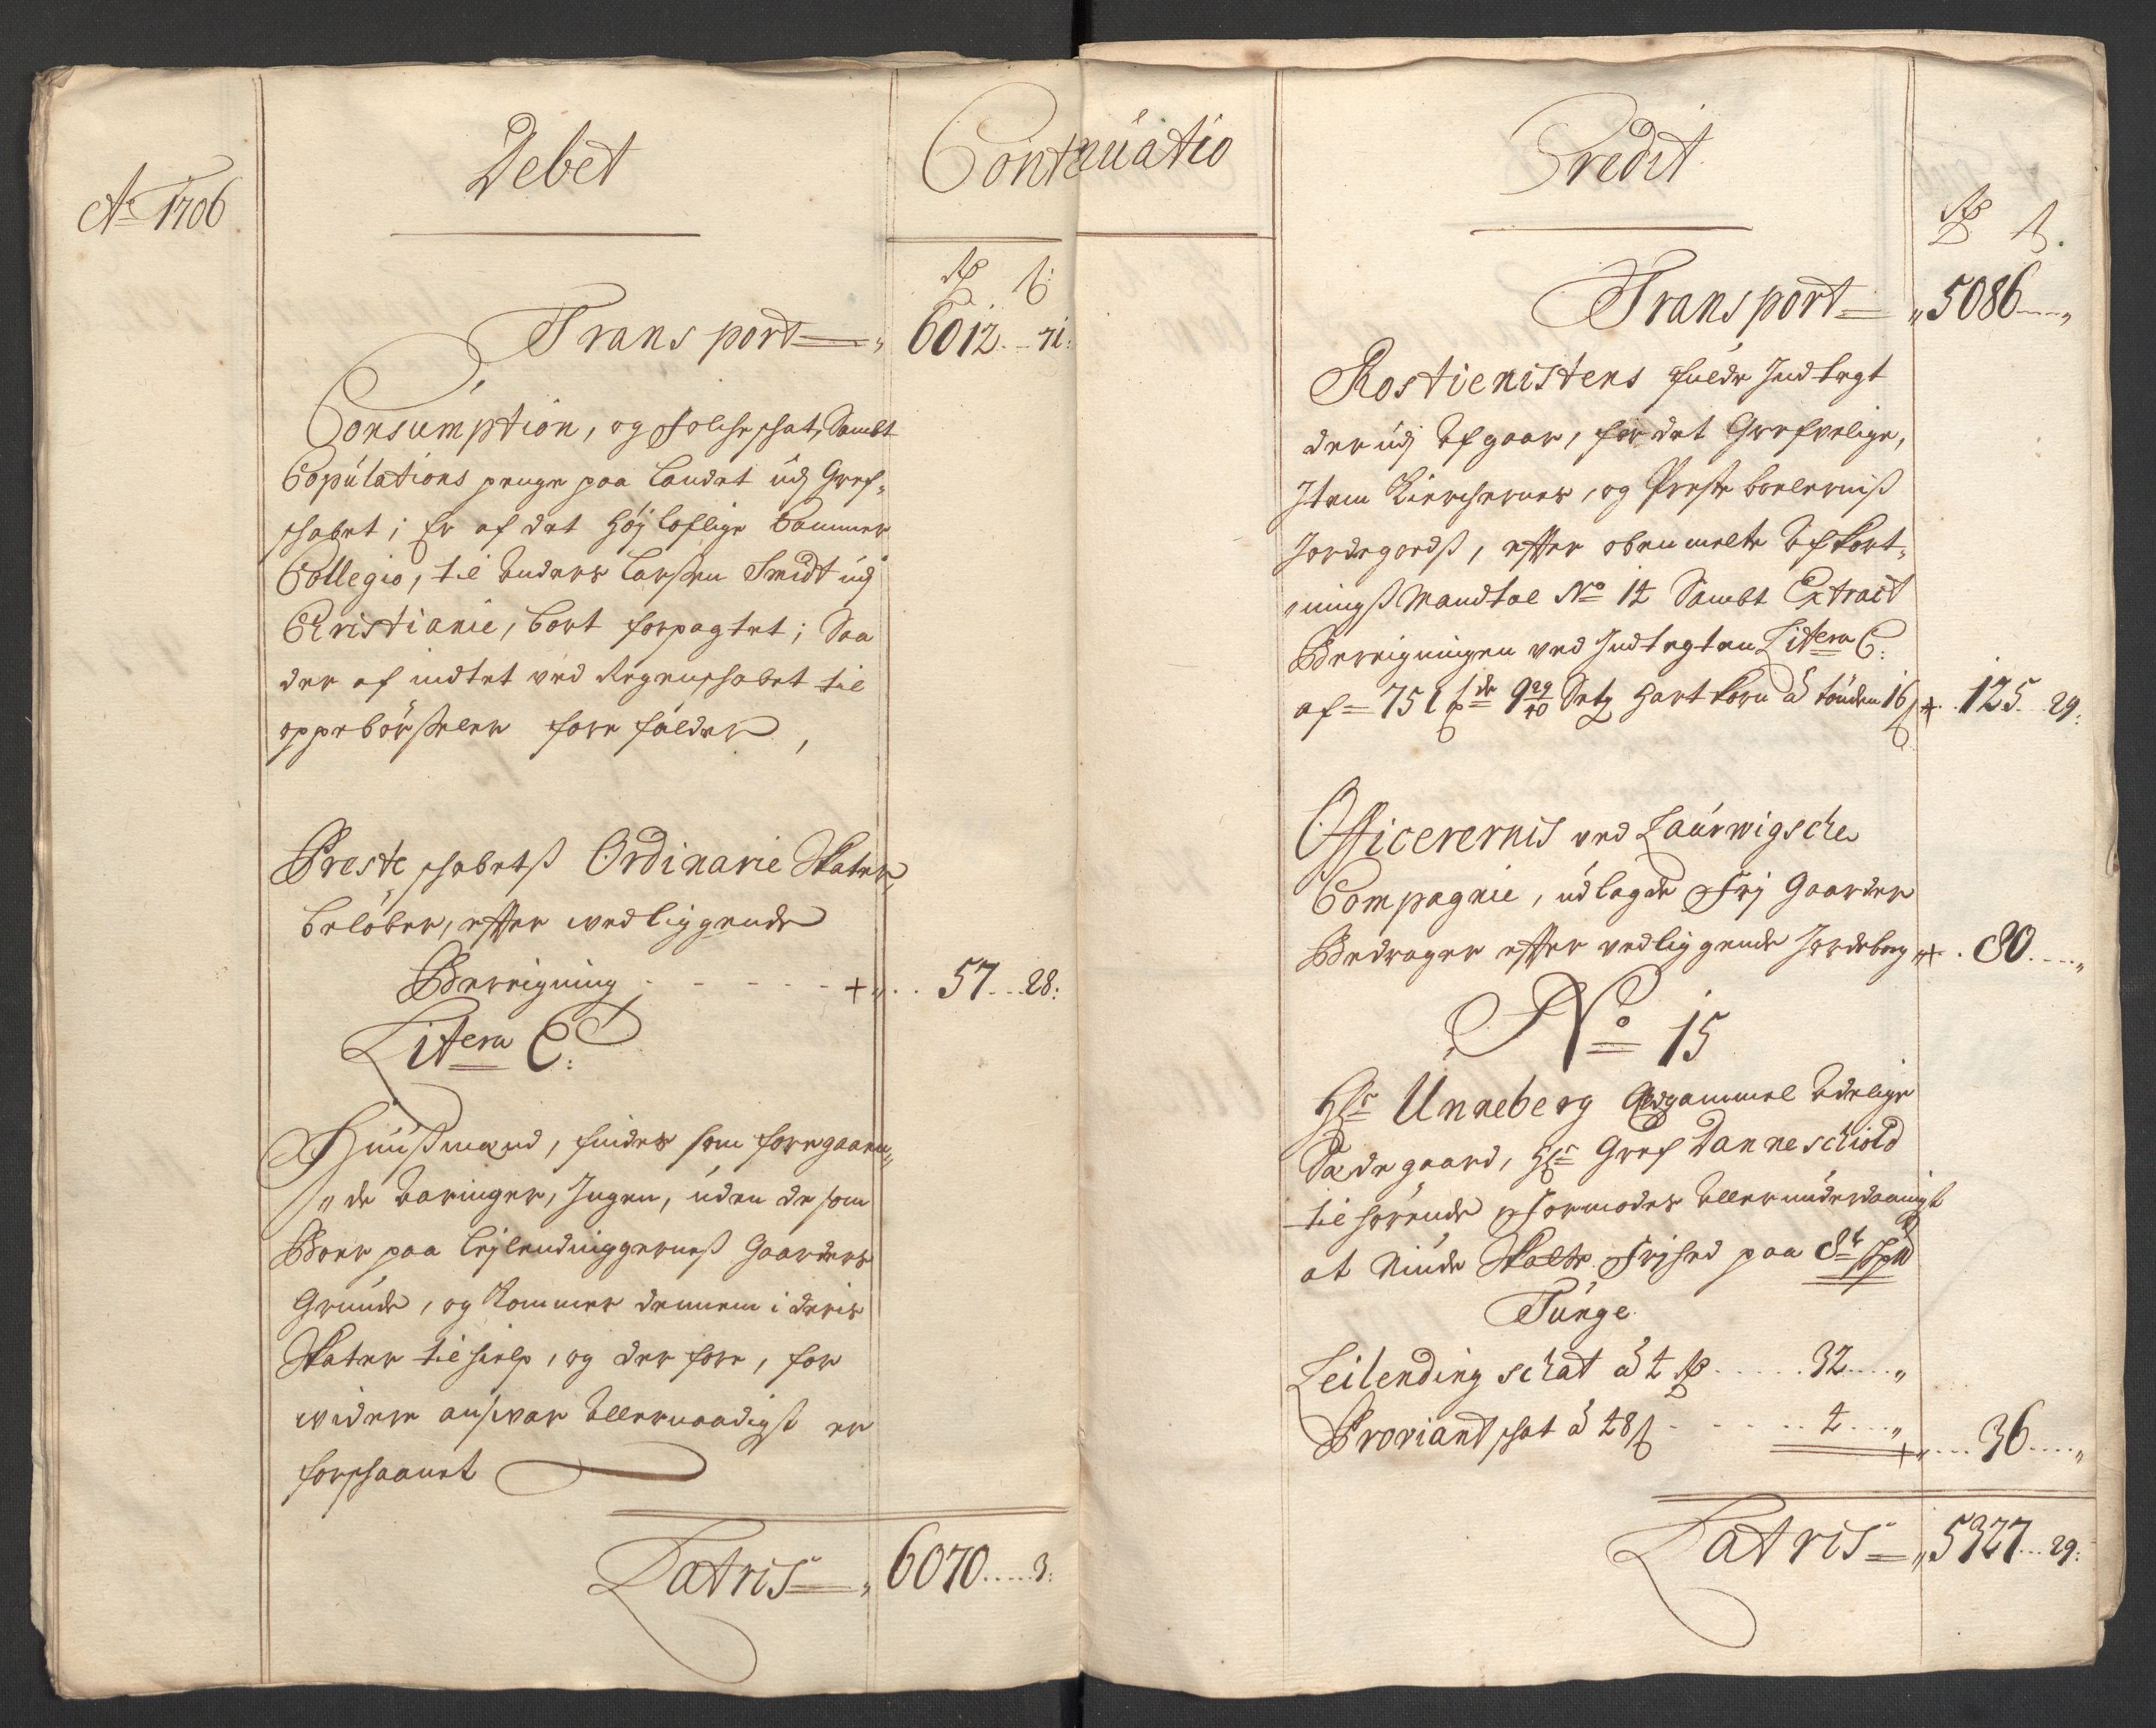 Ao 1706
Debet
Continuatio
Rd ß:
Transport 6012 - 71:
Consumption, og Folcheschat, Sambt
Copulations penge paa Landet udj Gref-
schabet; Er af det Høj Loflige Cammer
Collegio, til Anders Larsen Smidt udj
Christianie, bort forpagtet; Saa
der af indtet ved Regenschabet til
oppebørßeler fore falder,
Preste schabetß Ordinarie Skater
beløber, effter wedliggende
Beregning - - - - - + „ 57 - 28:
Litera C:
Huußmænd, findes som foregaaen-
de Aaringer, Ingen, uden de som
Boer paa Lejlendinggerneß Gaarders
Grunde, og kommer dennem i deris
Skater til hielp, og der fore, for
widere answar Allernaadigst er
forschaanet
Latris 6070 - 3:
Credit
Rd ß.
Transport „ 5086 - „
Rostienistens fulde Indtegt
der udj Afgaar, for det Grefvelige,
Item Kierchernes, og Preste boelerniß
Jordegodß, effter obenmelte Afkort-
ningß Mandtal No 14 Sambt Extract
Beregningen ved Indtegten Litera C:
af = 751 9 29/40 Setg Hart korn á tønden 16 ß + 125 - 29:
Officerernis ved Laurwigsche
Compagnie, udlagde Frj Gaarder
Bedrager effter vedliggende Jordebog „ + 80 - „
No 15
Hr Unneberg Aldgammel Adelige
Sædegaard, Hr Gref Danneschiold
tilhørende Formodes Allerunderdaanigst
at Niude Skatte Frjhed paa 8t
Tunge
Leilending schat á 4 Rd 32 - „
Proviant schat á 48 ß - - 4 - „ + 36 - „
Latris „ 5327 - 29: